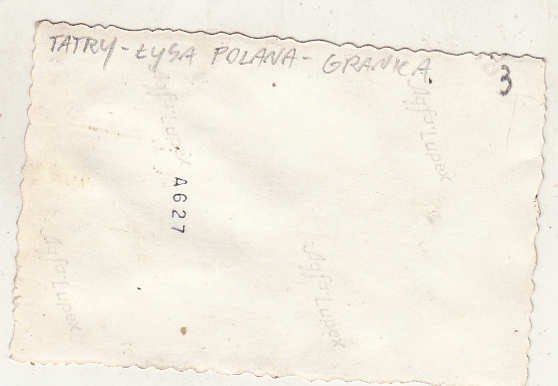 TATRY - ŁYSA POLANA - GRANICA.
3
Agfa-Lupex
Agfa-Lupex
A627
Agfa-Lupex
Agfa-Lupex